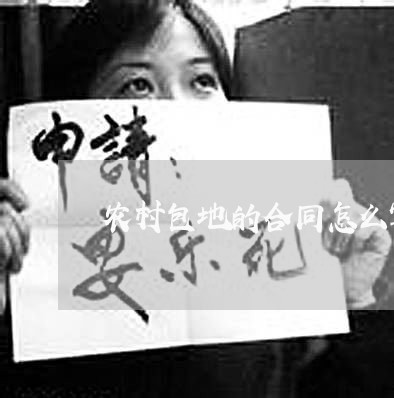 申請：
农村包地的合同怎么
安乐死